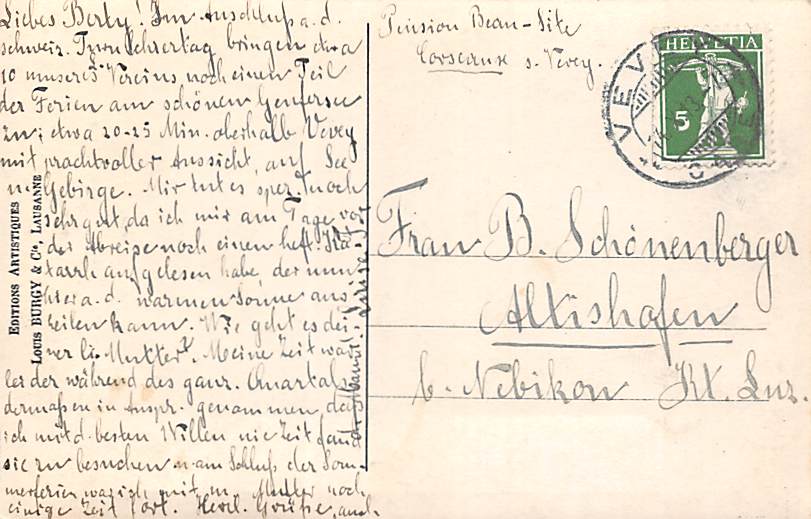 Liebes Berty! Im Anschluss a. d.
schweiz. Turnlehrertag bringen etwa
10 unseres Vereins noch einen Teil
der Ferien am schönen Genfersee
zu; etwa 20-25 Min. oberhalb Vevey
mit prachtvoller Aussicht auf See
u. Gebirge. Mir tut es spez. noch
sehr gut, da ich mir am Tage vor
der Abreise noch einen heft. Ka-
tarrh aufgelesen habe, der nun
hier a. d. warmen Sonne aus-
heilen kann. Wie geht es dei-
ner lb. Mutter? Meine Zeit war
leider während des ganz. Quartals
dermaßen in Anspr. genommen, daß
ich mit d. besten Willen nie Zeit fand
sie zu besuchen u. am Schluß der Som-
merferien war ich mit m. Mutter noch
einige Zeit fort. Herzl. Grüße, auch
Pension Beau-Site
Corseaux s. Vevey.
HELVETIA
5
VEVEY
Frau B. Schönenberger
Altishofen
b. Nebikon Kt. Luz.
EDITIONS ARTISTIQUES
LOUIS BURGY & Cie, LAUSANNE